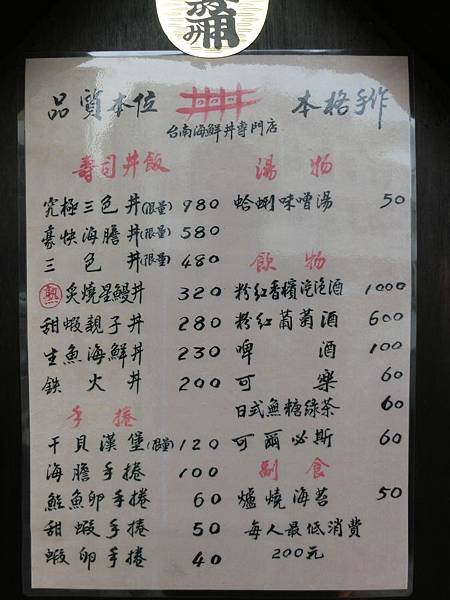 品質本位
本格手作
台南海鮮丼專門店
壽司丼飯
究極三色丼(限量) 980
豪快海膽丼(限量) 580
三色丼(限量) 480
熟 炙燒星鰻丼 320
甜蝦親子丼 280
生魚海鮮丼 230
鉄火丼 200
手捲
干貝漢堡(限量) 120
海膽手捲 100
鮭魚卵手捲 60
甜蝦手捲 50
蝦卵手捲 40
湯物
蛤蜊味噌湯 50
飲物
粉紅香檳汽泡酒 1000
粉紅葡萄酒 600
啤酒 100
可樂 60
日式無糖綠茶 60
可爾必斯 60
副食
爐燒海苔 50
每人最低消費
200元